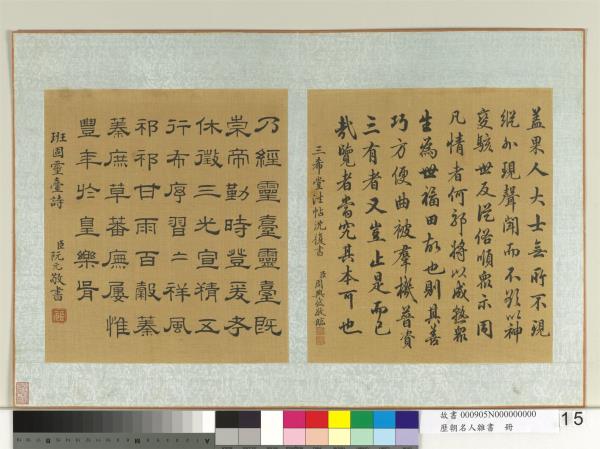 蓋果人大士無所不現
縱小現聲聞而不顯以神
變駭世反從俗順眾示同
凡情者何邪將以威整眾
生為世福田故也則其善
巧方便曲被羣機普資
三有者又豈止是而已
哉覽者當究其本可也
三希堂法帖沈復書
臣周興岱敬臨
乃經靈臺靈臺既
崇帝勤時登爰考
休徵三光宣精五
行布序習〻祥風
祁祁甘雨百穀蓁
蓁庶草蕃廡屢惟
豐年於皇樂胥
班固靈臺詩
臣阮元敬書
故書 000905N000000000
歷朝名人雜書 冊
15